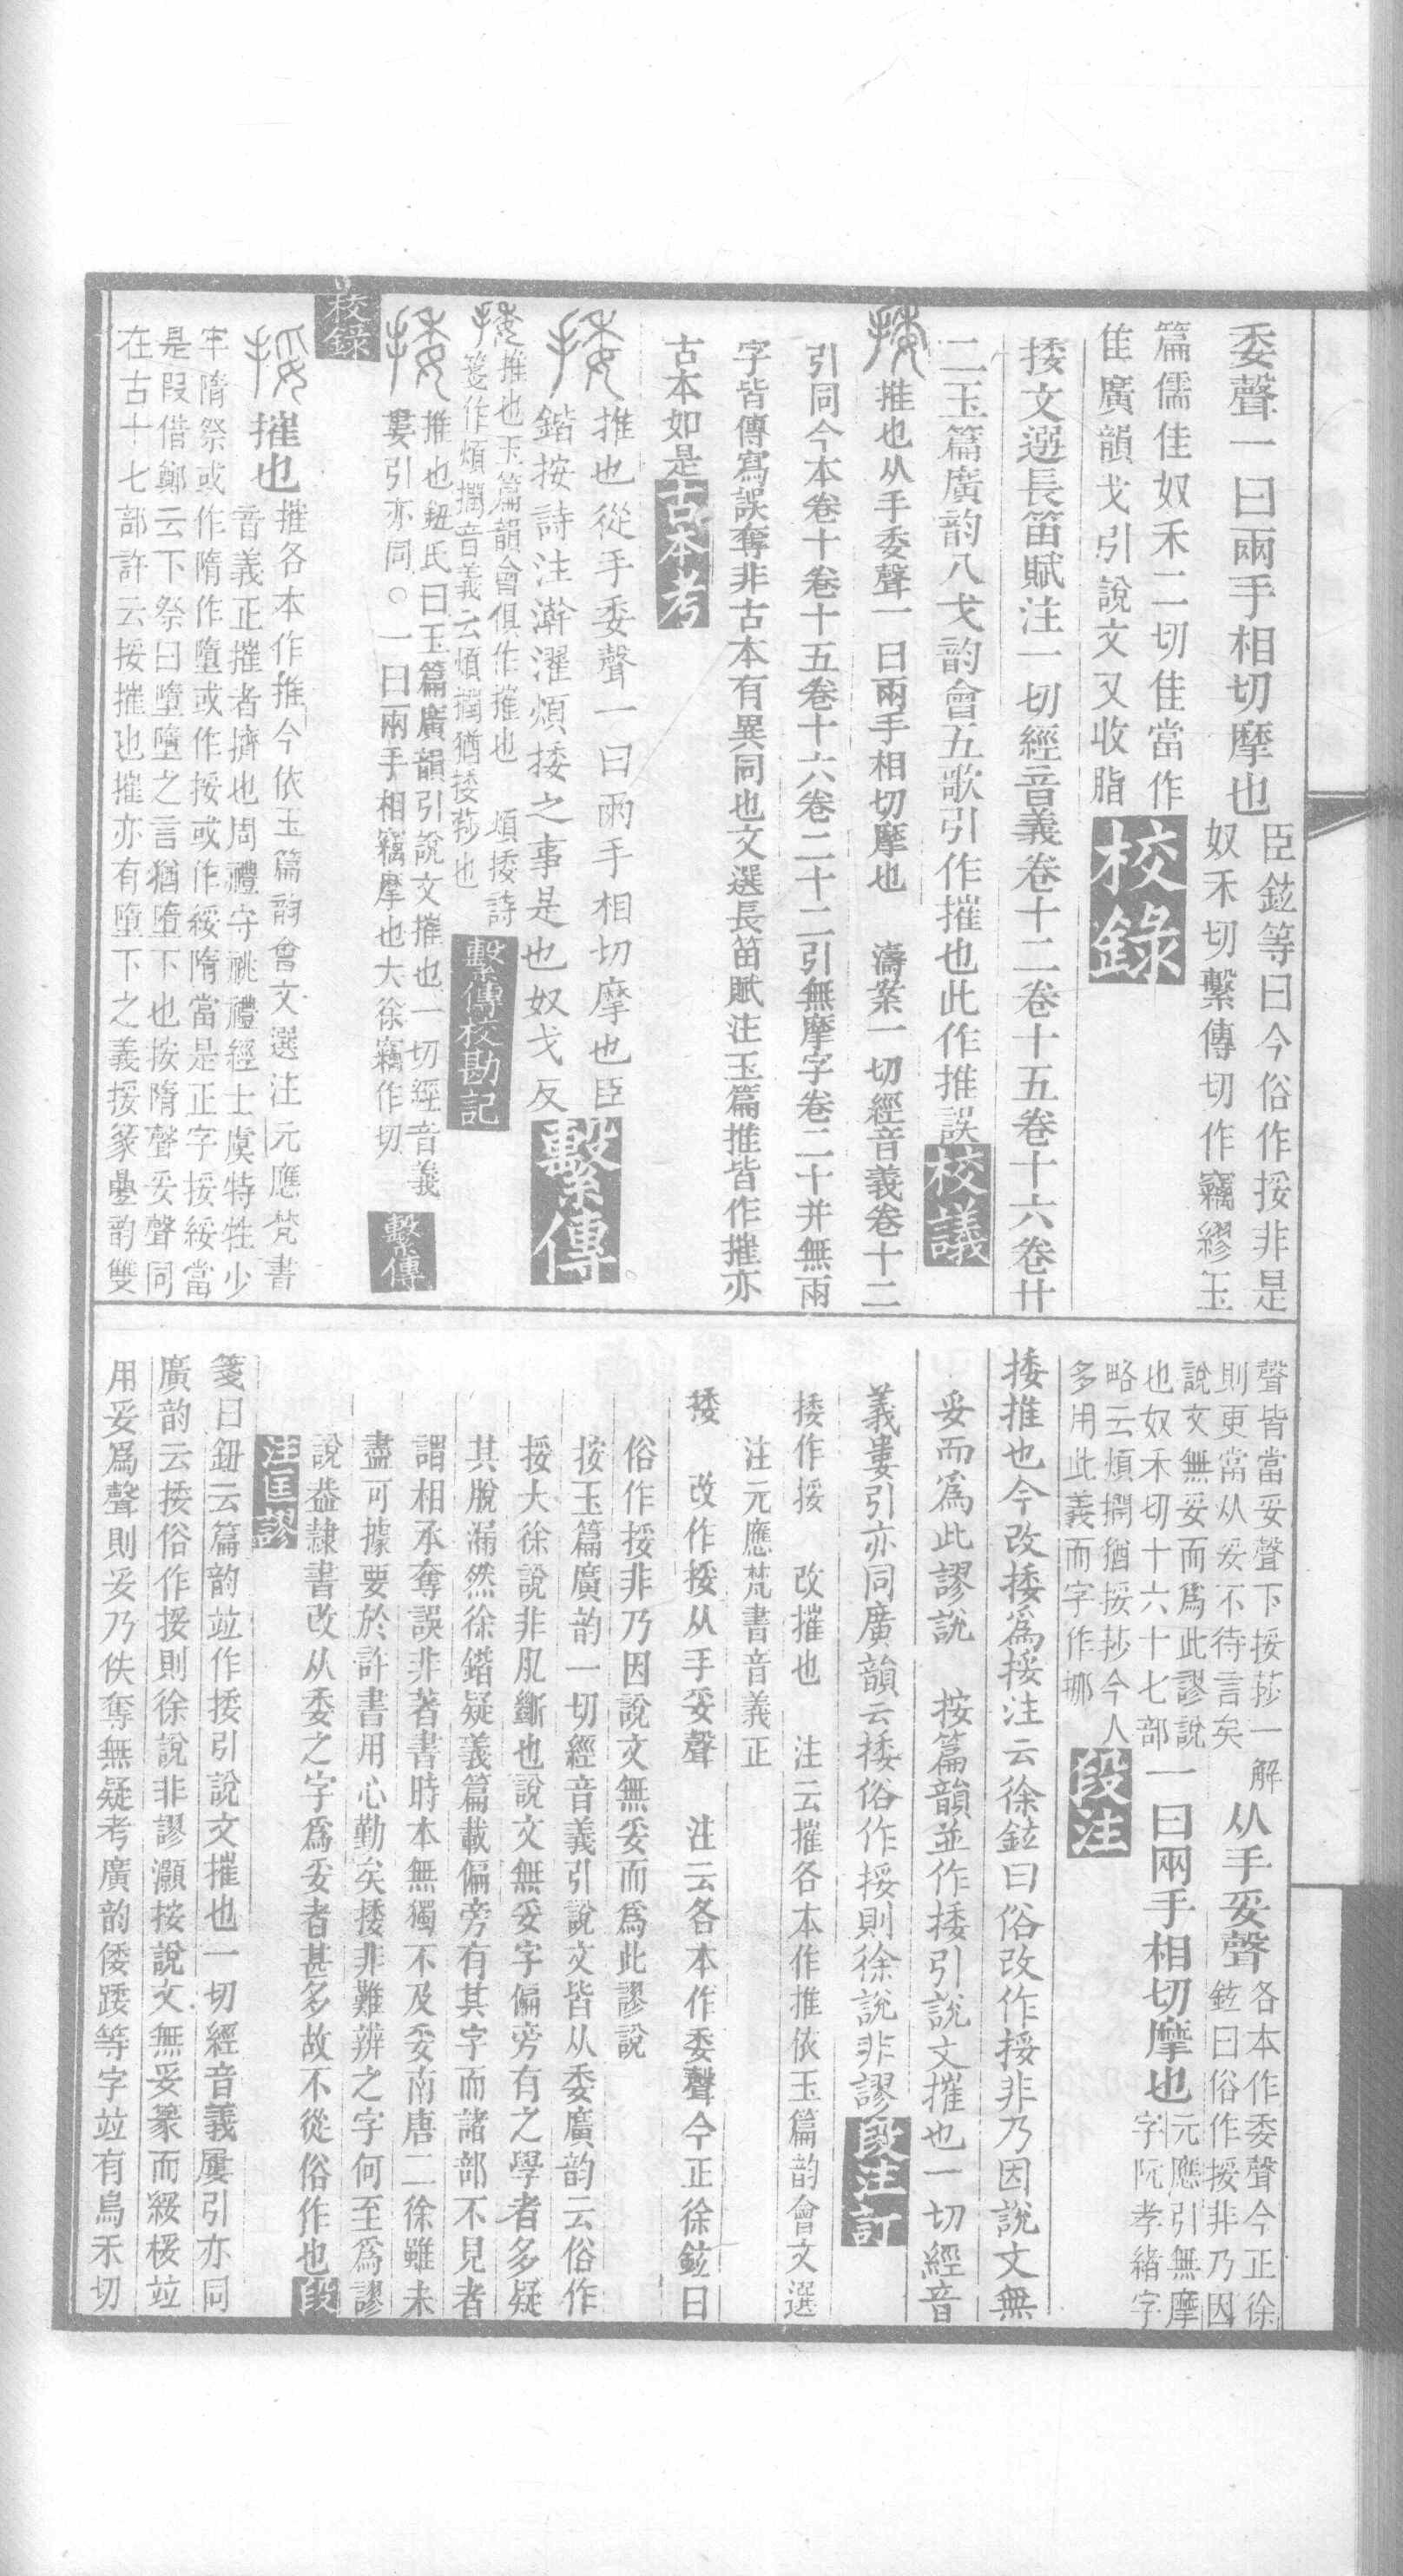 委聲一曰兩手相切摩也
臣鉉等曰今俗作挼非是
奴禾切繫傳切作竊繆玉
篇儒隹奴禾二切隹當作
隹廣韻戈引說文又收脂
校錄
捼文選長笛賦注一切經音義卷十二卷十五卷十六卷廿
二玉篇廣韵八戈韵會五歌引作摧也此作推誤校議
捼推也从手委聲一曰兩手相切摩也　濤案一切經音義卷十二
引同今本卷十卷十五卷十六卷二十二引無摩字卷二十并無兩
字皆傳寫誤奪非古本有異同也文選長笛賦注玉篇推皆作摧亦
古本如是古本考
捼推也從手委聲一曰兩手相切摩也臣
鍇按詩注澣濯煩捼之事是也奴戈反
繫傳
捼推也玉篇韻會俱作摧也　煩捼詩
箋作煩撋音義云煩撋猶捼莏也
繫傳校勘記
捼推也鈕氏曰玉篇廣韻引說文摧也一切經音義
婁引亦同。一曰兩手相竊摩也大徐竊作切
繫傳
校錄
挼摧也
摧各本作推今依玉篇韵會文選注元應梵書
音義正摧者擠也周禮守祧禮經士虞特牲少
牢隋祭或作隋作墮或作挼或作綏隋當是正字挼綏當
是叚借鄭云下祭曰墮墮之言猶墮下也按隋聲妥聲同
在古十七部許云挼摧也摧亦有墮下之義挼篆曡韵雙
聲皆當妥聲下挼莎一解
則更當从妥不待言矣
从手妥聲
各本作委聲今正徐
鉉曰俗作挼非乃因
說文無妥而爲此謬說
也奴禾切十六十七部
一曰兩手相切摩也
元應引無摩
字阮孝緒字
略云煩撋猶挼莏今人
多用此義而字作挪
段注
捼推也今改捼爲挼注云徐鉉曰俗改作挼非乃因說文無
妥而爲此謬說　按篇韻並作捼引說文摧也一切經音
義婁引亦同廣韻云捼俗作挼則徐說非謬段注訂
捼作挼　改摧也　注云摧各本作推依玉篇韵會文選
注元應梵書音義正
捼　改作挼从手妥聲　注云各本作委聲今正徐鉉曰
俗作挼非乃因說文無妥而爲此謬說
按玉篇廣韵一切經音義引說文皆从委廣韵云俗作
挼大徐說非肊斷也說文無妥字偏旁有之學者多疑
其脫漏然徐鍇疑義篇載偏旁有其字而諸部不見者
謂相承奪誤非著書時本無獨不及妥南唐二徐雖未
盡可據要於許書用心勤矣捼非難辨之字何至爲謬
說葢隷書改从委之字爲妥者甚多故不從俗作也段
注匡謬
箋曰鈕云篇韵竝作捼引說文摧也一切經音義屢引亦同
廣韵云捼俗作挼則徐說非謬灝按說文無妥篆而綏桵竝
用妥爲聲則妥乃佚奪無疑考廣韵倭踒等字竝有烏禾切